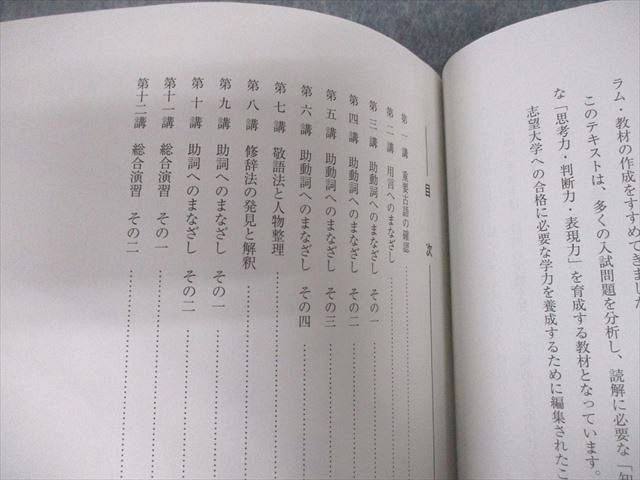 ラム・教材の作成をすすめてきました
このテキストは、多くの入試問題を分析し、読解に必要な「知
な「思考力・判断力・表現力」を育成する教材となっています。
志望大学への合格に必要な学力を養成するために編集されたこ
目次
第一講 重要古語の確認
第二講 用言へのまなざし
第三講 助動詞へのまなざし その一
第四講 助動詞へのまなざし その二
第五講 助動詞へのまなざし その三
第六講 助動詞へのまなざし その四
第七講 敬語法と人物整理
第八講 修辞法の発見と解釈
第九講 助詞へのまなざし その一
第十講 助詞へのまなざし その二
第十一講 総合演習 その一
第十二講 総合演習 その二